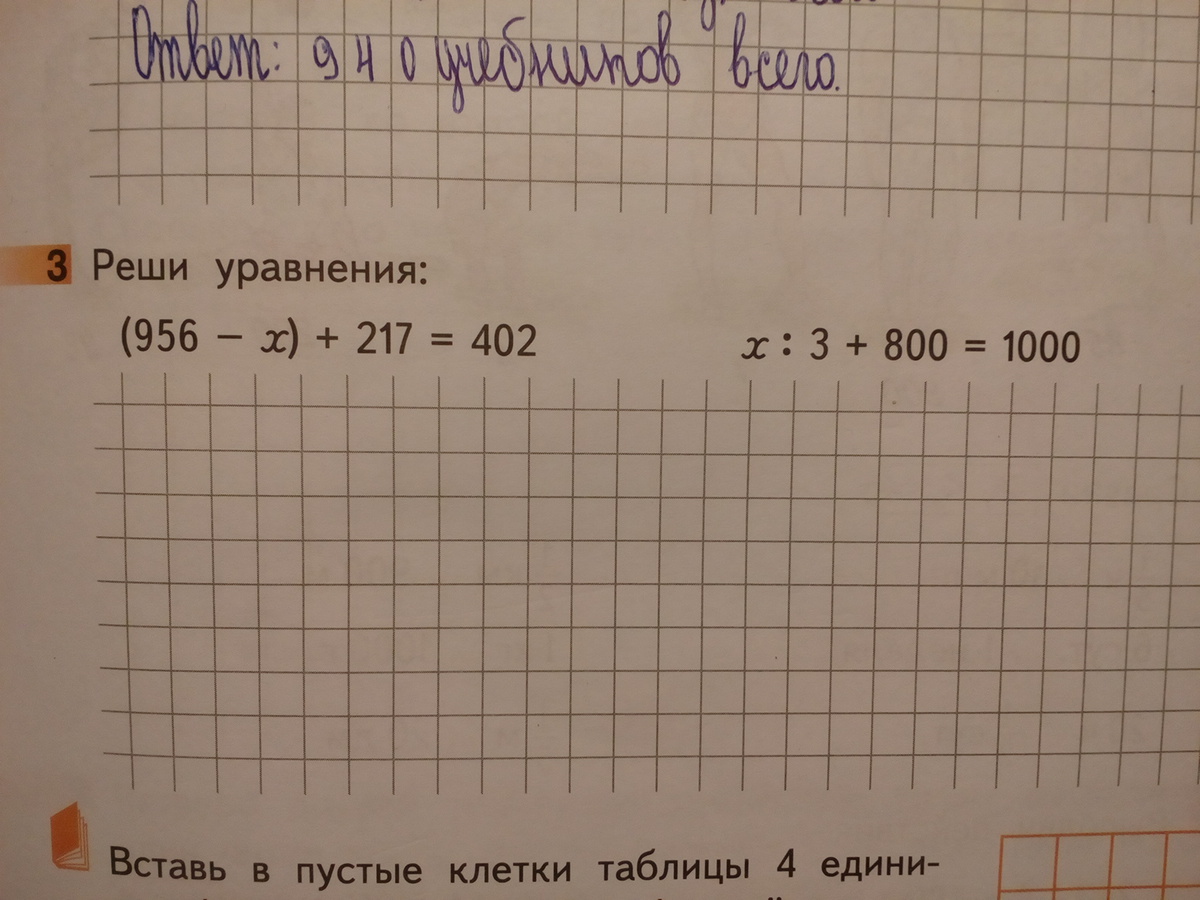 Ответ: 940 учебников всего.
3 Реши уравнения:
(956 − x) + 217 = 402 x : 3 + 800 = 1000
Вставь в пустые клетки таблицы 4 едини-